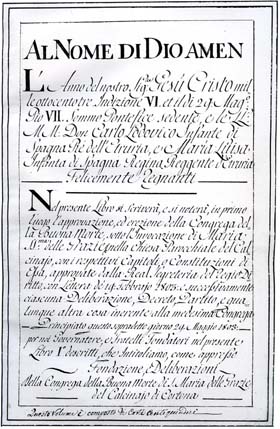 AL NOME DI DIO AMEN
L'Anno del nostro Sig.re Gesù Cristo mil
le ottocento tre Indizione VI. et il dì 29 Mag.o
Pio VII. Sommo Pontefice sedente, e le LL.
M. M. Don Carlo Lodovico Infante di
Spagna Re dell'Etruria, e Maria Luisa
Infanta di Spagna Regina Reggente d'Etruria
Felicemente Regnanti
Nel presente Libro si scriverà, e si noterà, in primo
luogo l'approvazione, ed erezione della Congrega del
la Buona Morte, sotto l'Invocazione di Maria
delle Grazie nella Chiesa Parrocchiale del Cal
cinajo, con i respettivi Capitoli, o Constituzioni di
Essa, approvate dalla Real Segreteria del Regio Di
ritto, con Lettera de' 19 Febbraio 1803: e successivamente
ciascuna Deliberazione, Decreto Partito e qua
lunque altra cosa inerente alla medesima Congrega
Principiato questo spredetto giorno 29 Maggio 1803:
per noi Governatore, e Fratelli Fondatori nel presente
Libro descritti, che Intitoliamo, come appresso
Fondazione, e Deliberazioni
Della Congrega della Buona Morte di S. Maria delle Grazie
del Calcinajo di Cortona
Questo Volume è composto di Carte